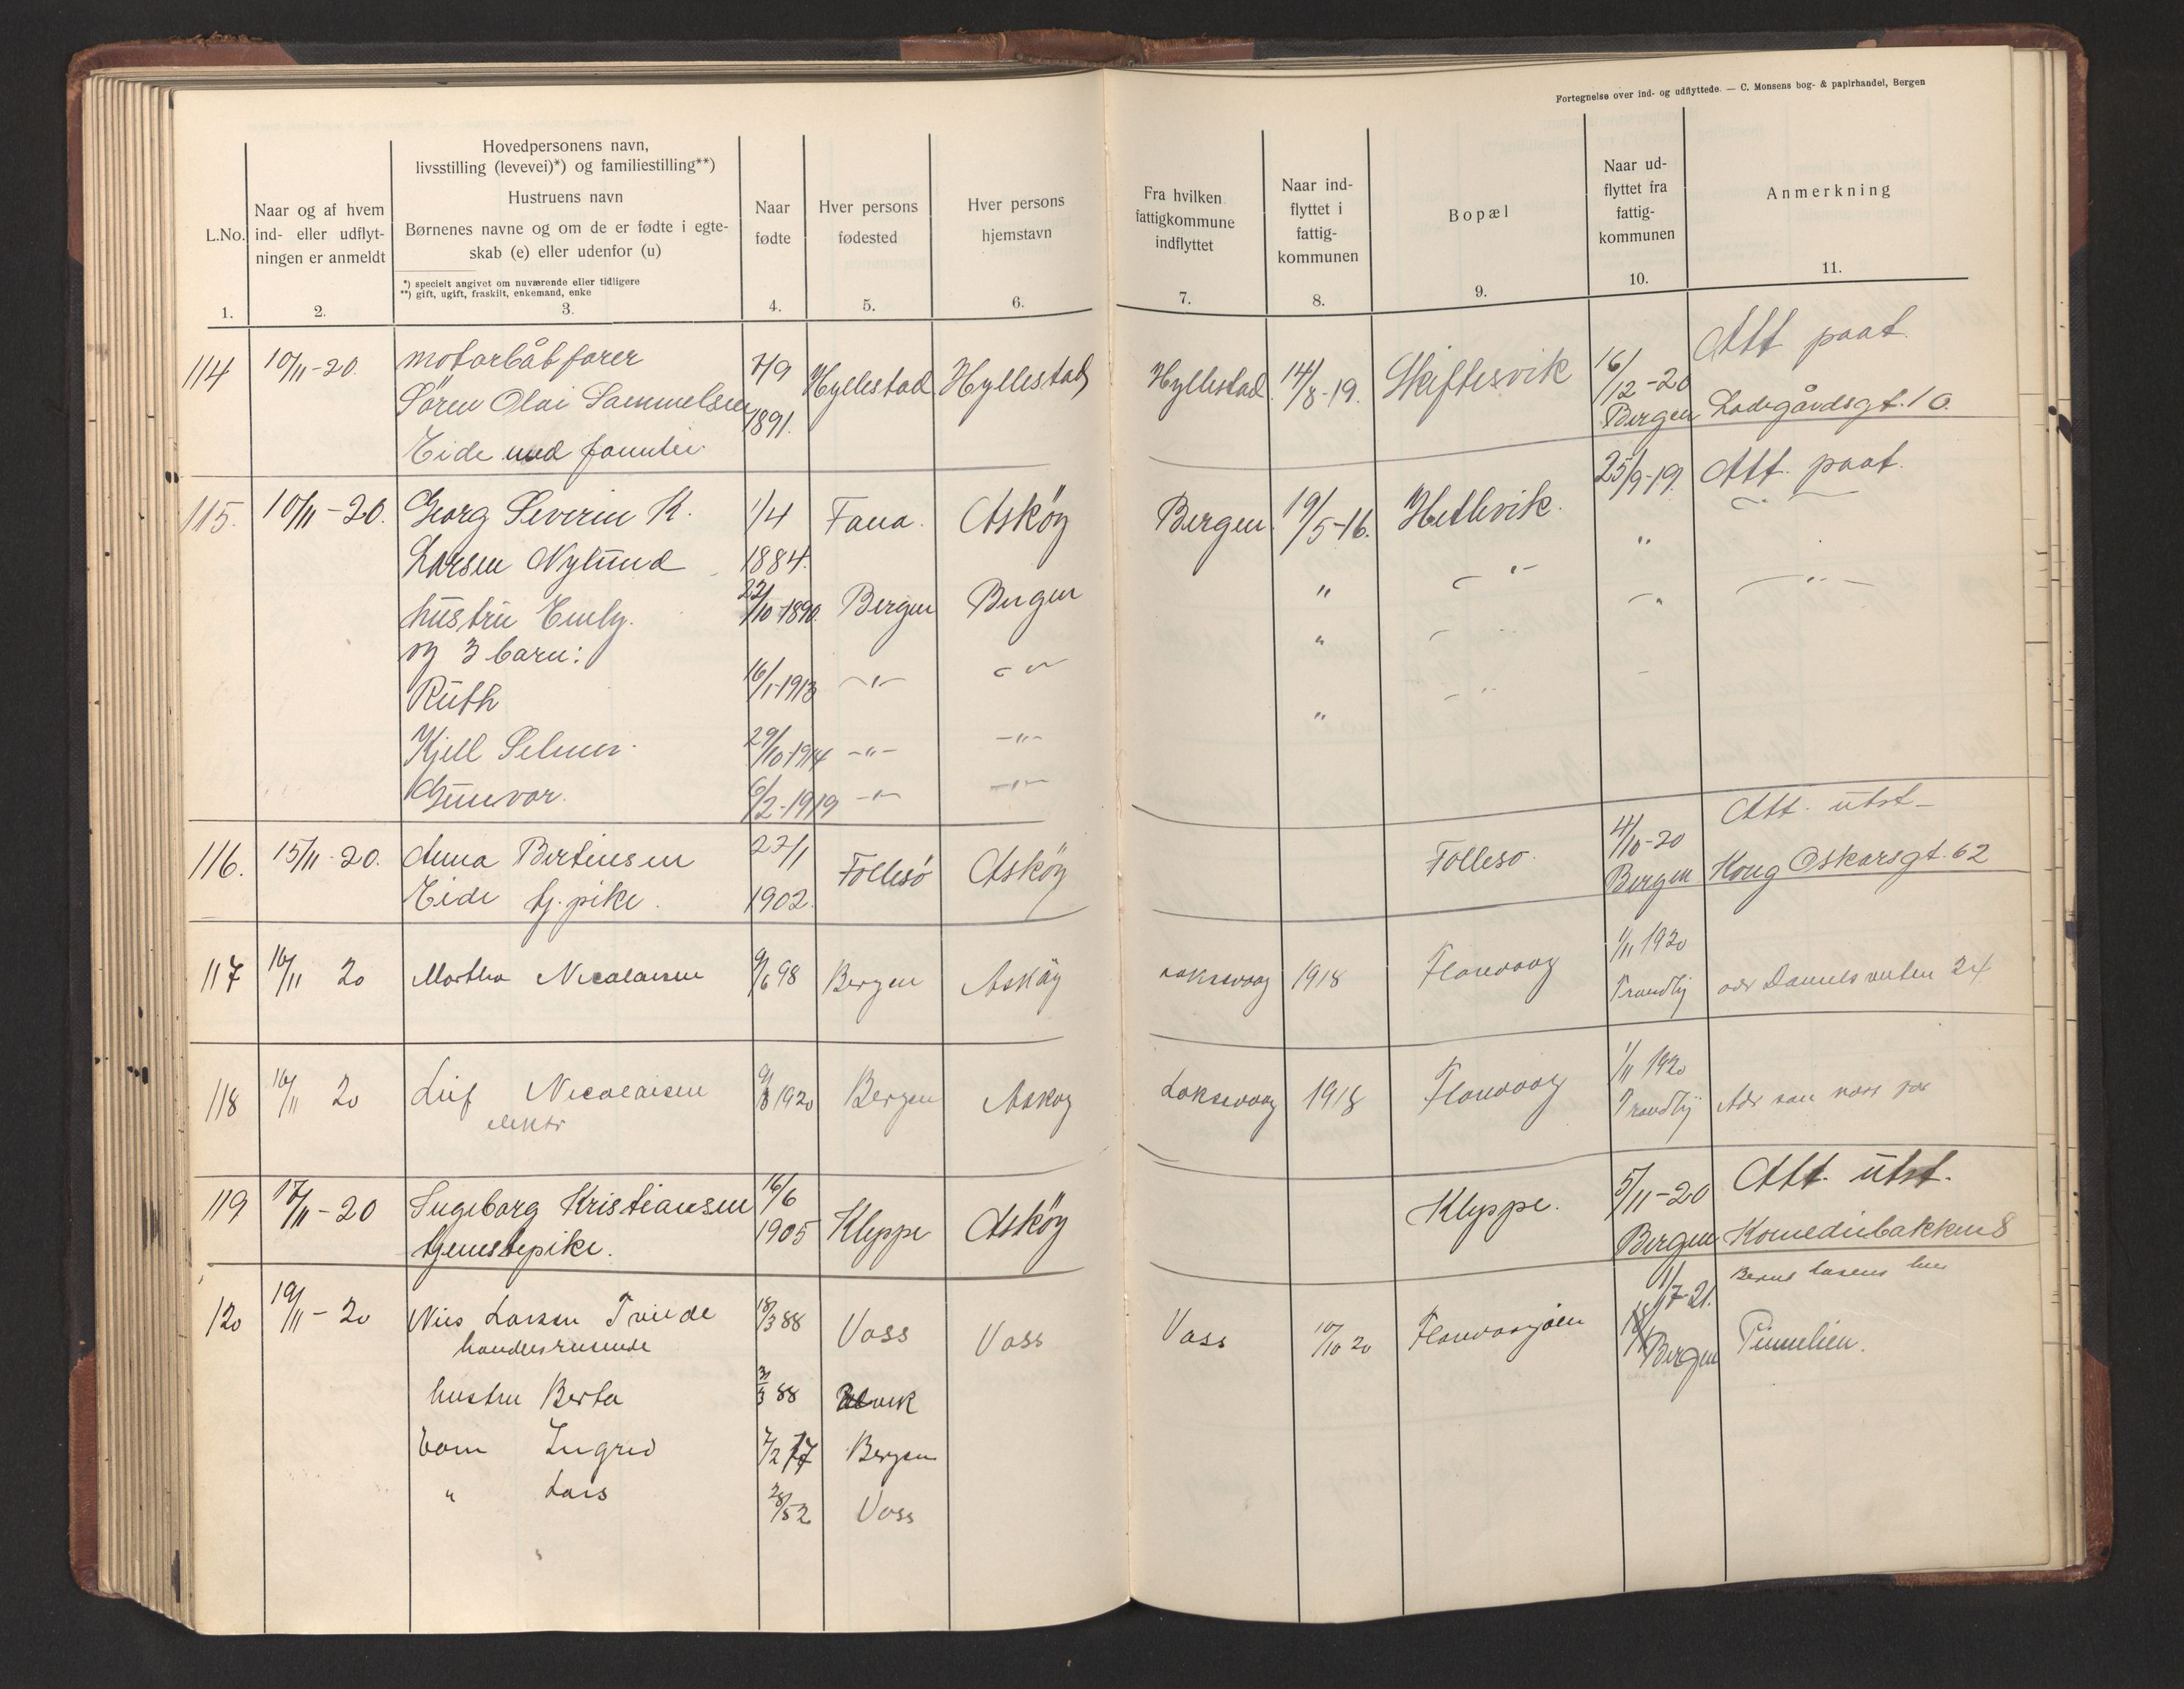 Fortegnelse over ind- og udflyttede. — C. Monsens bog- & papirhandel, Bergen
L.No.
1.
Naar og af hvem
ind- eller udflyt-
ningen er anmeldt
2.
Hovedpersonens navn,
livsstilling (levevei)*) og familiestilling**)
Hustruens navn
Børnenes navne og om de er fødte i egte-
skab (e) eller udenfor (u)
*) specielt angivet om nuværende eller tidligere
**) gift, ugift, fraskilt, enkemand, enke
3.
Naar
fødte
4.
Hver persons
fødested
5.
Hver persons
hjemstavn
6.
Fra hvilken
fattigkommune
indflyttet
7.
Naar ind-
flyttet i
fattig-
kommunen
8.
Bopæl
9.
Naar ud-
flyttet fra
fattig-
kommunen
10.
Anmerkning
11.
114 10/11-20. motorbåtfører 7/9 Hyllestad Hyllestad Hyllestad 14/8-19. Skiftesvik 16/12-20 Att paat.
Sören Olai Sammelsen 1891. Bergen Ladegårdsgt. 10.
Eide med familie
115. 10/11-20. Georg Severin K. 1/4 Fana. Asköy Bergen 19/5-16. Hetlevik. 25/9-19. Att. paat.
Larsen Nylund 1884.
hustru Emly. 22/10-1890. Bergen Bergen " -"- " -"-
og 3 barn:
Ruth 16/1-1913 -"- -"- "
Kjell Selmer. 29/10-1914 -"- -"- " -"-
Gunvor. 6/2-1919 -"- -"-
116. 15/11-20. Anna Bertinsen 22/1 Follesö Asköy Follesö. 4/10-20 Att. utst-
Eide tj. pike. 1902. Bergen Kong Oskarsgt. 62
117 16/11 20 Martha Nicolaisen 9/6 98 Bergen Askøy Laksevaag 1918 Florvaag 1/11 1920
24
118 16/11 20 Leif Nicolaisen 1920 Bergen Askøy Laksevaag 1918 Florvaag 1/11 1920
119 17/11-20 Ingeborg Kristiansen 16/6 Kleppe Asköy Kleppe. 5/11-20 Att. utst.
tjenestepike. 1905 Bergen Komediebakken 8
120 19/11-20 Nils Larsen 18/3 88 Voss Voss Voss 10/10 20 Florvaagøen 1/7-21.
handelsreisende Bergen
hustru Berta 88
barn Ingrid 17 Bergen
" Lars 28/5 Voss